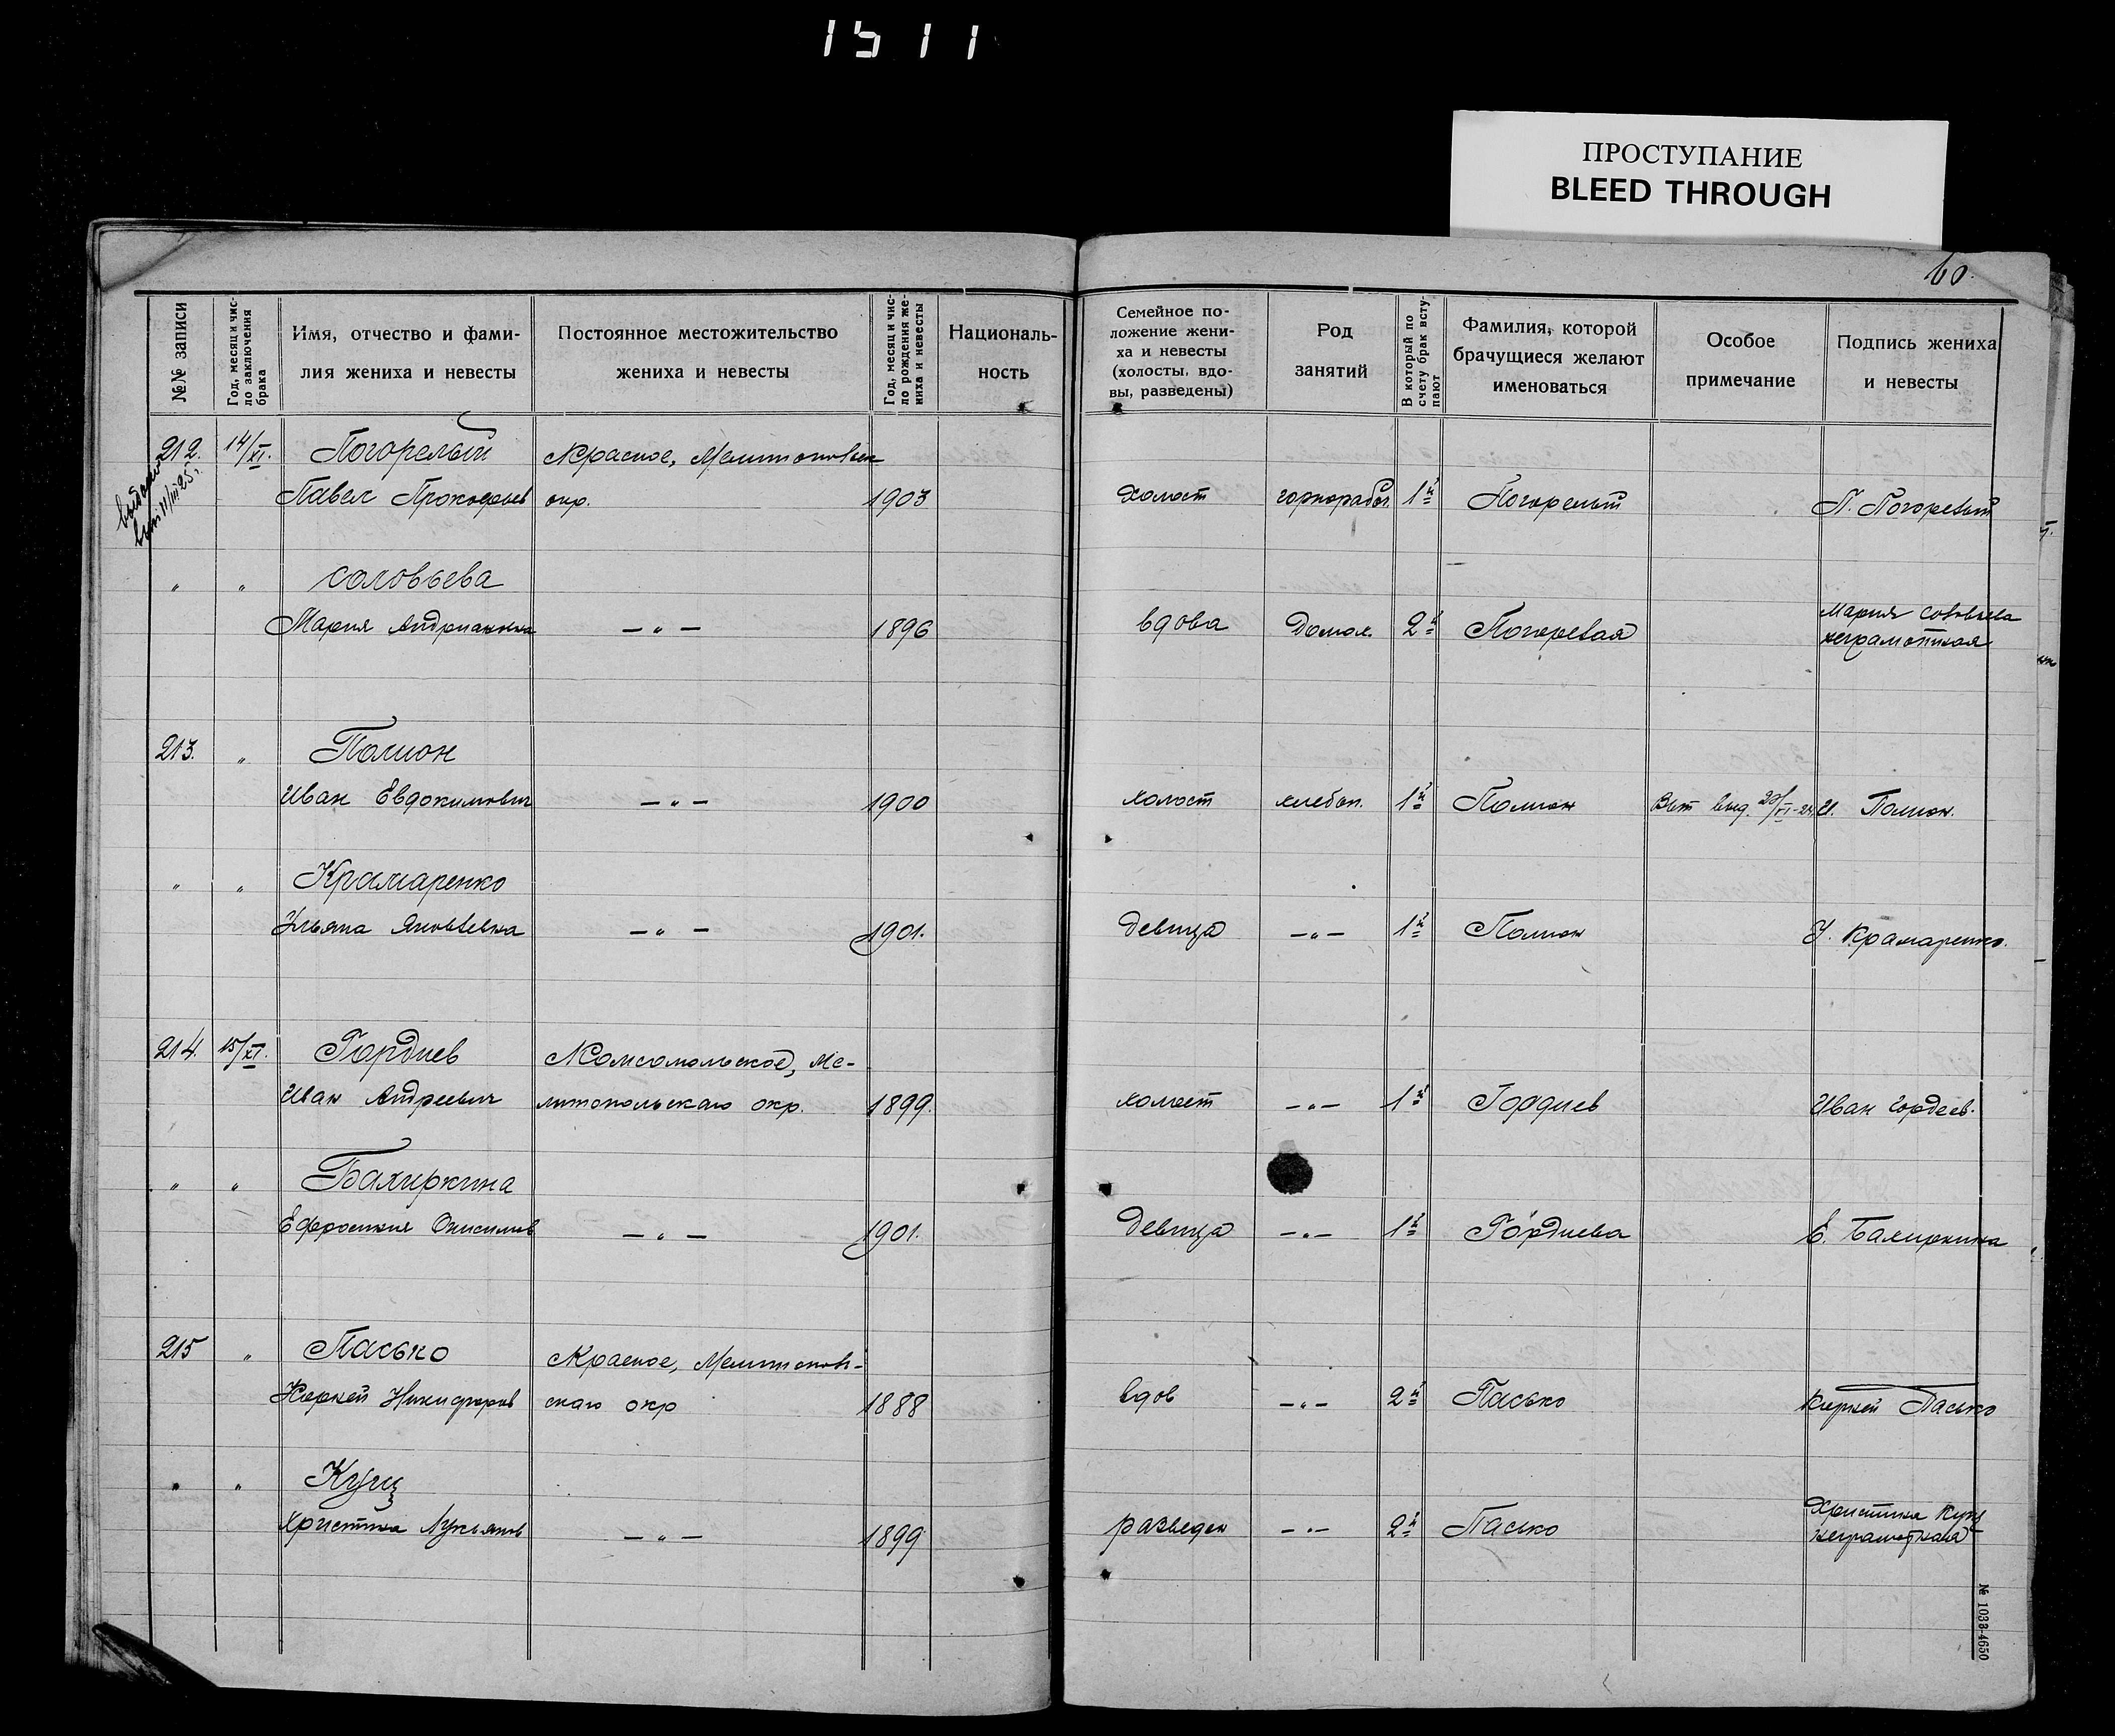 1511
ПРОСТУПАНИЕ
BLEED THROUGH
60.
№№ записи
Год, месяц и чис-
ло заключения
брака
Имя, отчество и фами-
лия жениха и невесты
Постоянное местожительство
жениха и невесты
Год, месяц и чис-
ло рождения же-
ниха и невесты
Националь-
ность
Семейное по-
ложение жени-
ха и невесты
(холосты, вдо-
вы, разведены)
Род
занятий
В который по
счету брак всту-
пают
Фамилия, которой
брачущиеся желают
именоваться
Особое
примечание
Подпись жениха
и невесты
212. 14/XI. Погорелый Красное,
Павел Прокофьев окр. 1903 холост горнорабоч. 1й Погорелый П. Погорелый
11/III 25г.
" " Соловьева
Мария Андриановна —"— 1896 вдова Домох. 2й Погорелая Мария Соловьева
неграмотная
213. " Полион
Иван Евдокимович —"— 1900 холост хлебоп. 1й Полион Вып выд. /XI-24 И. Полион.
" " Крамаренко
Ульяна Яковлевна —"— 1901. девица —"— 1й Полион У. Крамаренко.
214. 15/XI. Гордиев Комсомольское, Ме-
Иван Андреевич литопольскаго окр. 1899. холост —"— 1й Гордиев Иван Гордеев.
" " Балиркина
Ефросиния Онисимов —"— 1901. девица —"— 1й Гордиева Е. Балиркина
215 " Пасько Красное,
Корней Никифоров скаго окр 1888 вдов —"— 2й Пасько Корней Пасько
" " Кущ
Христина Лукьянов —"— 1899 разведен —"— 2й Пасько Христина Кущ
неграмотная
№ 1033-4650